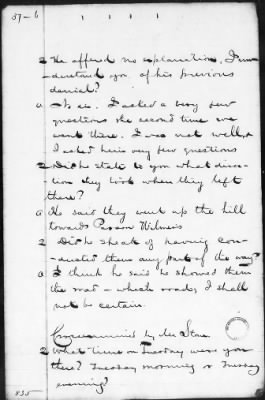 37-6
Q He offered no explanation, I un-
derstand you, of his previous
denial?
A No sir. I asked a very few
questions the second time we
went there. I was not well, &
I asked him very few questions
Q Did he state to you what direc-
tion they took when they left
there?
A He said they went up the hill
towards Parson Wilmer's
Q Did he speak of having con-
ducted them any part of the way?
A I think he said he showed them
the road - which road, I shall
not be certain.
Cross examined by Mr Stone
Q What time on Tuesday were you
there? Tuesday morning or Tuesday
evening?